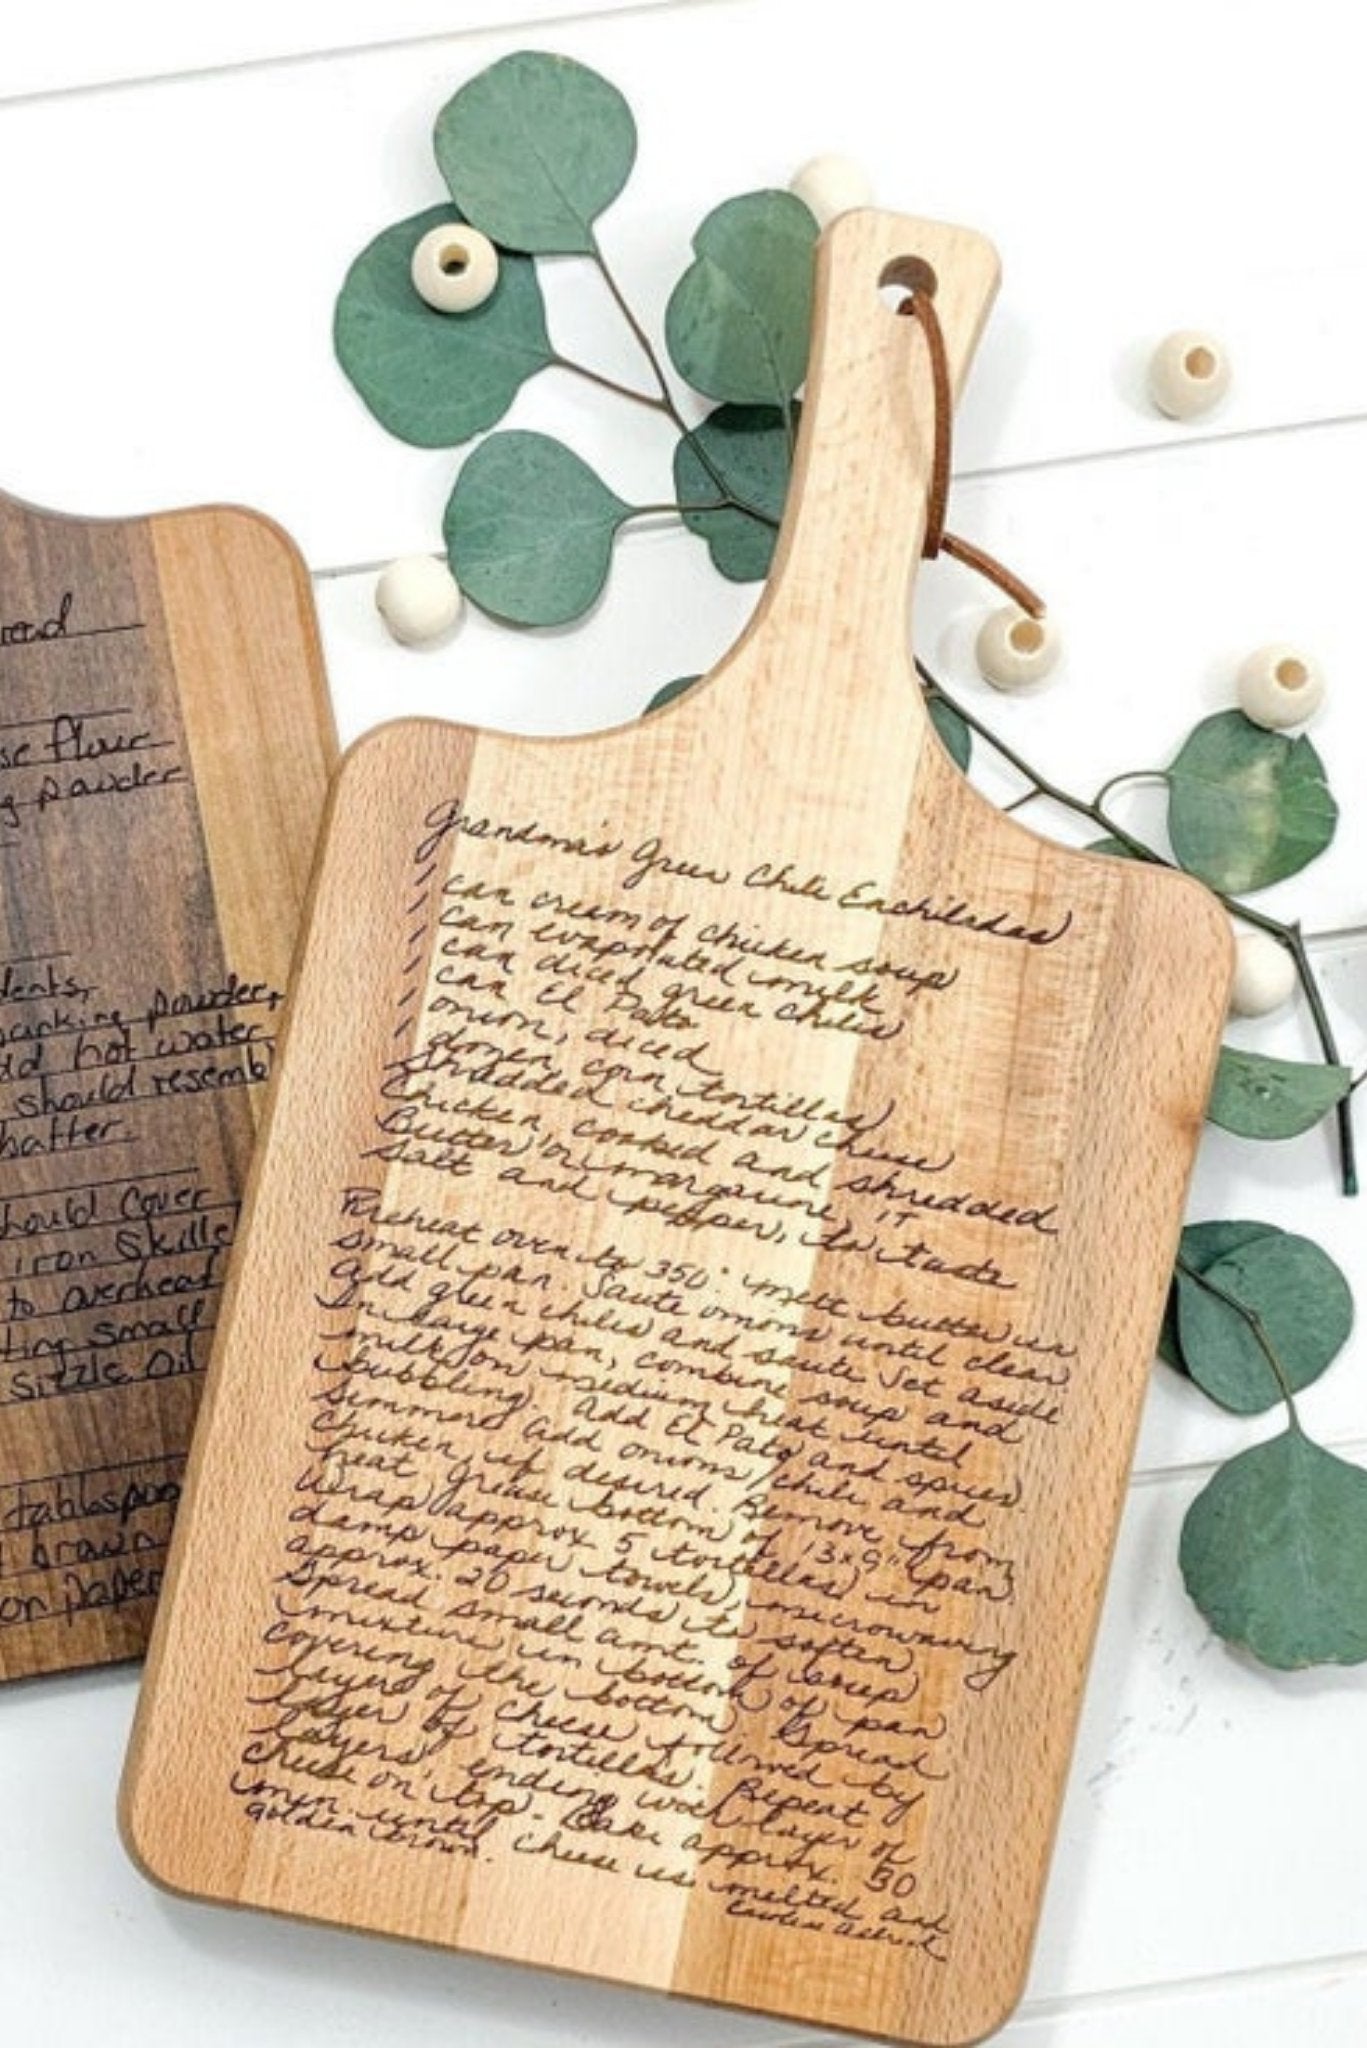 Grandma's Green Chile Enchiladas
1 can cream of chicken soup
1 can evaporated milk
1 can diced green chiles
1 can El Pato
1 onion, diced
1 dozen corn tortillas
Shredded cheddar cheese
Chicken, cooked and shredded
Butter or margarine
Salt and pepper, to taste
Preheat oven to 350°. melt butter in
small pan. Saute onions until clear.
Add green chiles and saute. Set aside
In large pan, combine soup and
milk on medium heat until
bubbling. Add El Pato and spices.
Simmer. Add onions/chile and
chicken, if desired. Remove from
heat. Grease bottom of 13x9" pan.
Wrap approx. 5 tortillas in
damp paper towels, microwaving
approx. 20 seconds to soften
Spread small amt. of soup
mixture in bottom of pan
covering the bottom. Spread
layers of cheese followed by
layer of tortillas. Repeat
layers, ending with layer of
cheese on top. Bake approx. 30
min. until cheese is melted and
golden brown.
flour
powder
powder,
hot water
should resemb
batter.
should cover
iron Skille
to overhead
small
Sizzle Oil
tablespoo
brown
on paper